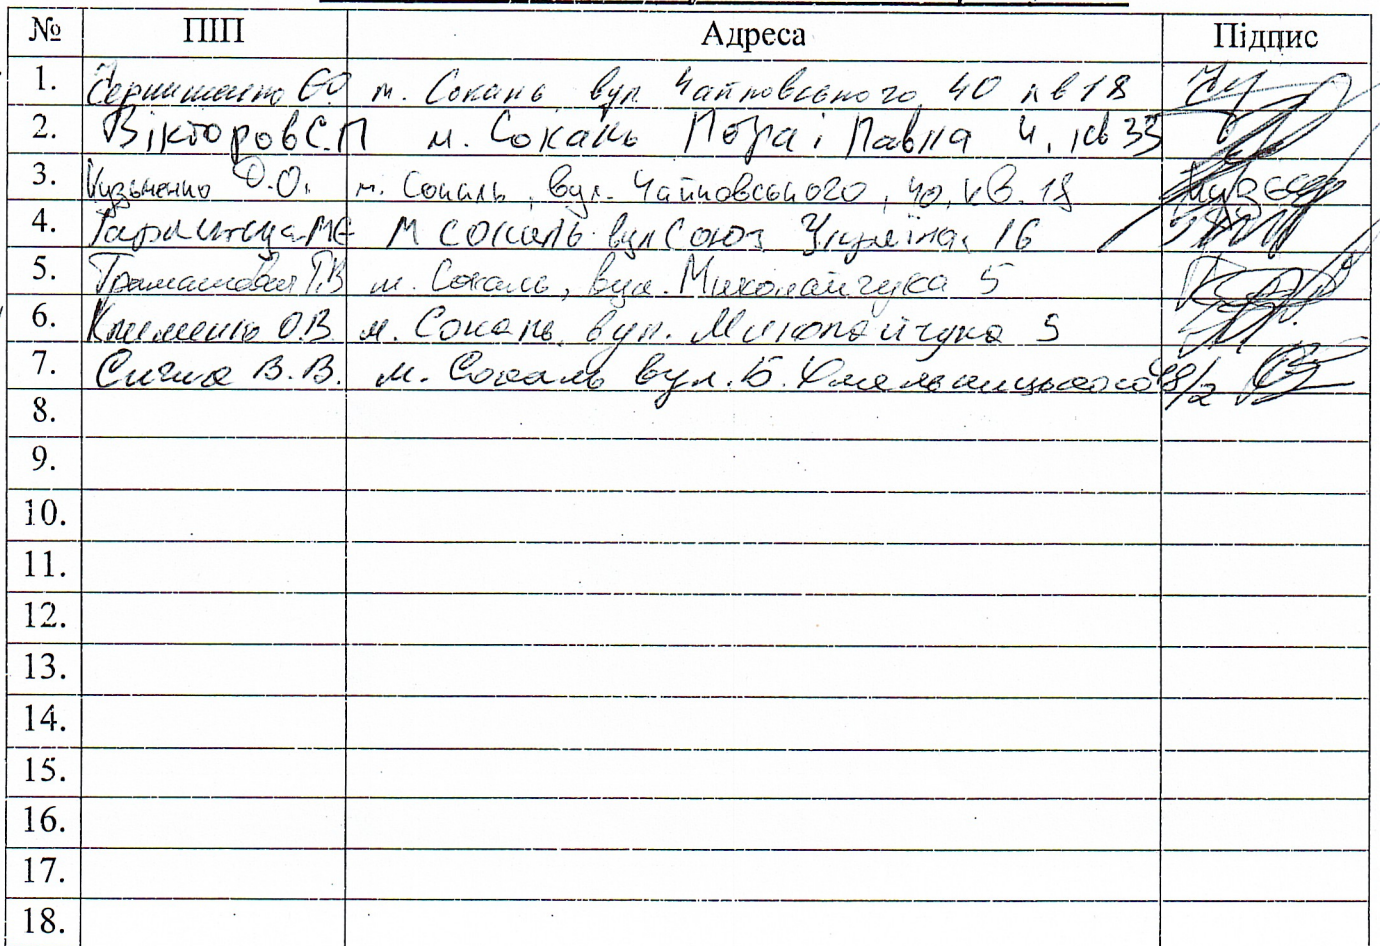 № ПІП Адреса Підпис
1. Є.О. м. Сокаль вул Чайковського, 40 кв 18
2. Вікторов С.П м. Сокаль Петра і Павла 4, кв 33
3. Кузьменко О.О. м. Сокаль, вул. Чайковського, 40, кв. 18
4. МЄ м сокаль вул Союз Українок 16
5. Т.В м. Сокаль, вул. Миколайчука 5
6. Клименко О.В. м. Сокаль, вул. Миколайчука 5
7. В.В. м. Сокаль вул. Б. Хмельницького 48/2
8.
9.
10.
11.
12.
13.
14.
15.
16.
17.
18.